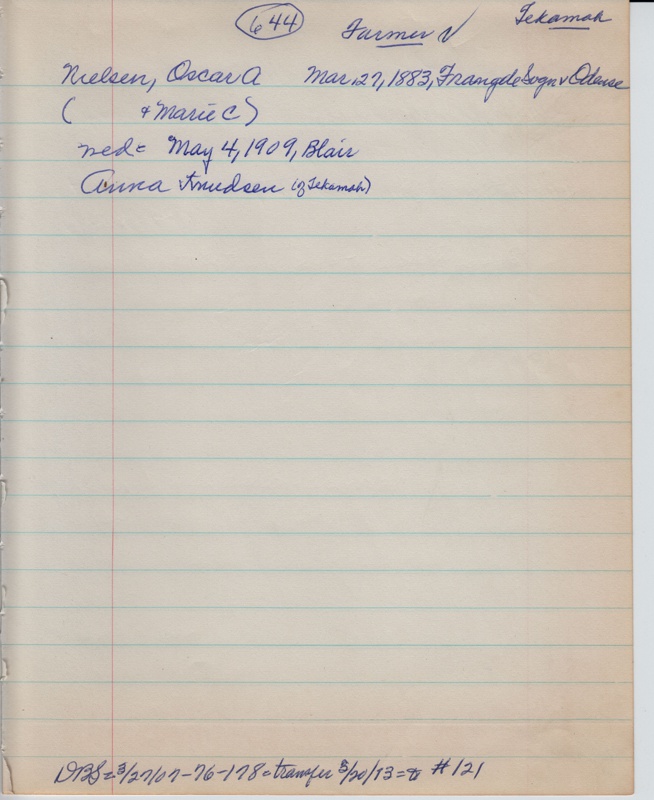 644 Farmer √ Tekamah
Nielsen, Oscar A Mar. 27, 1883, Frangde Sogn v Odense
( + Marie C)
med= May 4, 1909, Blair
Anna Knudsen (of Tekamah)
DBS= 3/27/07-76-178= transfer 3/20/13= to #121